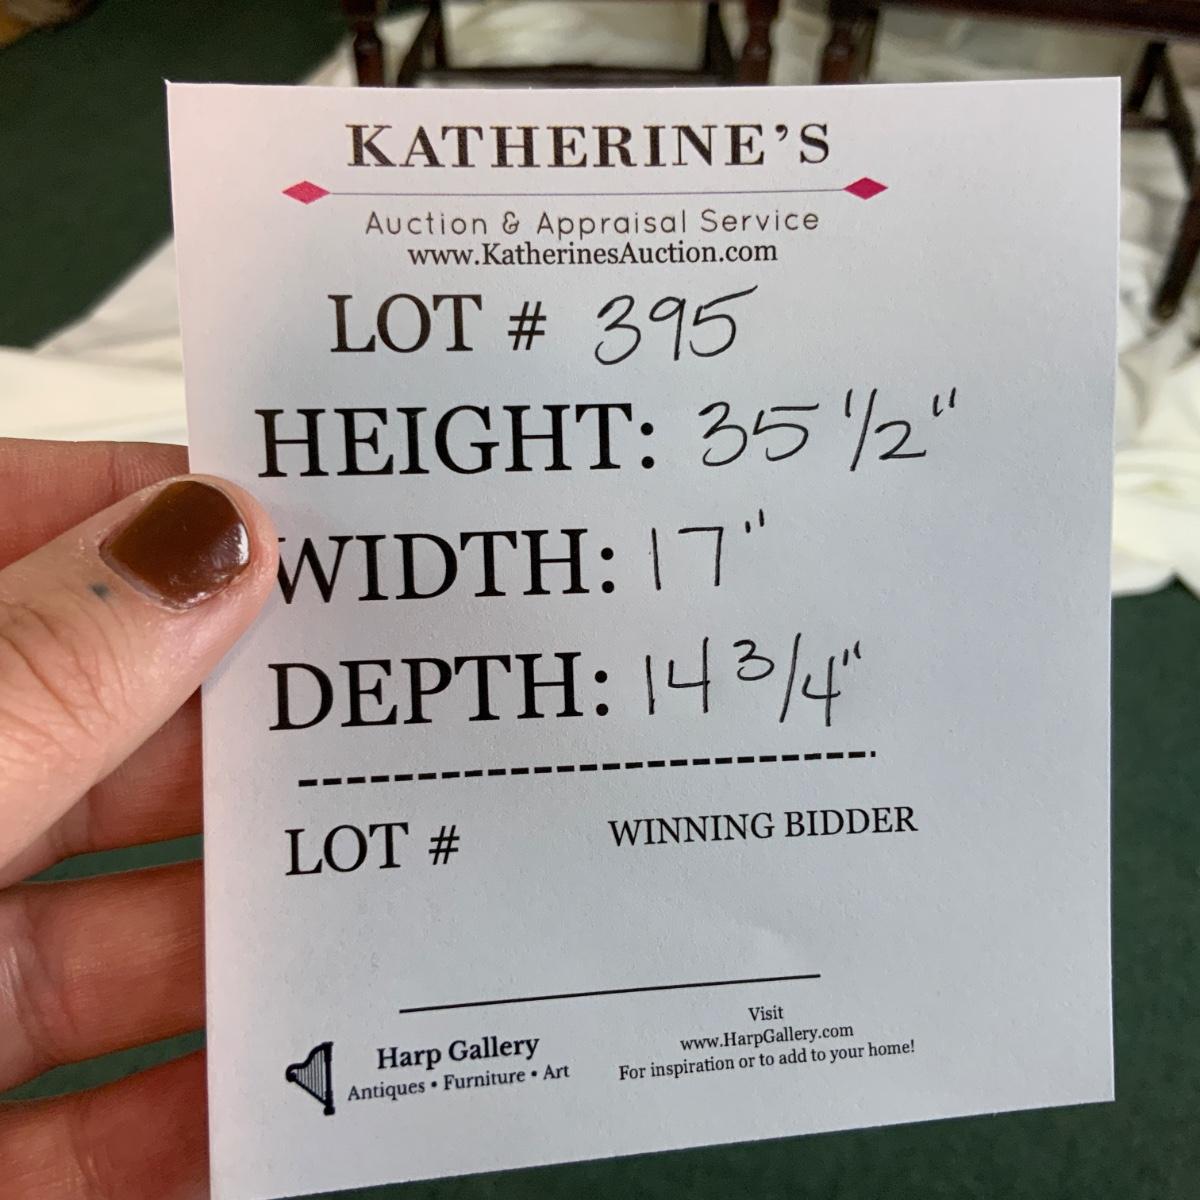 KATHERINE'S
Auction & Appraisal Service
www.KatherinesAuction.com
LOT # 395
HEIGHT: 35 1/2"
WIDTH: 17"
DEPTH: 14 3/4"
LOT #
WINNING BIDDER
Harp Gallery
Antiques • Furniture • Art
Visit
www.HarpGallery.com
For inspiration or to add to your home!